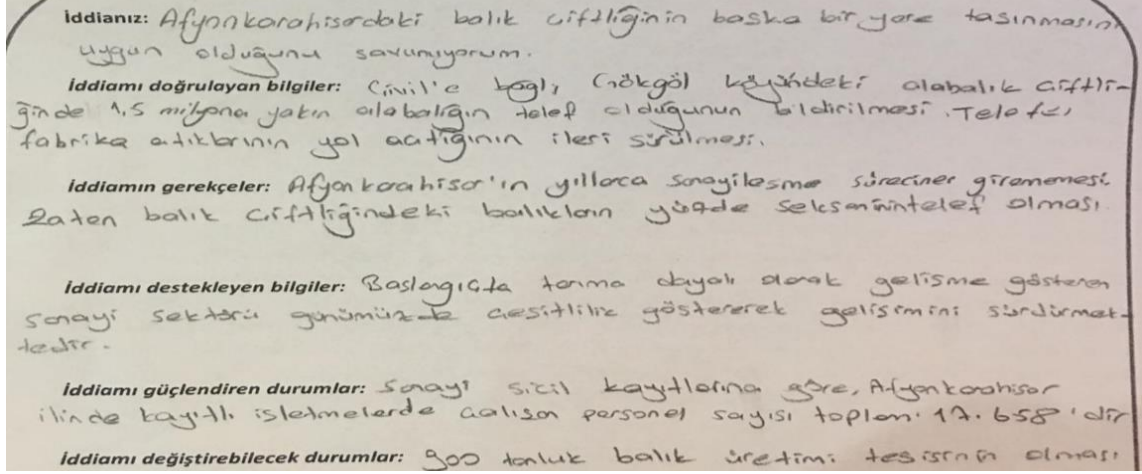 İddianız: Afyonkarahisardaki balık çiftliğinin başka bir yere taşınmasın
uygun olduğunu savunuyorum.
İddiamı doğrulayan bilgiler: Civil'e bağlı Gökgöl köyündeki alabalık çiftli-
ğinde 1,5 milyona yakın alabalığın telef olduğunun bildirilmesi. Telefe,
fabrika atıklarının yol açtığının ileri sürülmesi.
İddiamın gerekçeler: Afyonkarahisar'ın yıllarca sanayileşme sürecine girememesi.
Zaten balık çiftliğindeki balıkların yüzde sekseninintelef olması.
İddiamı destekleyen bilgiler: Başlangıçta tarıma dayalı olarak gelişme gösteren
sanayi sektörü günümüzde çeşitlilik göstererek gelişimini sürdürmek-
tedir.
İddiamı güçlendiren durumlar: Sanayi sicil kayıtlarına göre, Afyonkarahisar
ilinde kayıtlı işletmelerde çalışan personel sayısı toplam 17.658'dir
İddiamı değiştirebilecek durumlar: 900 tonluk balık üretimi tesisinin olması